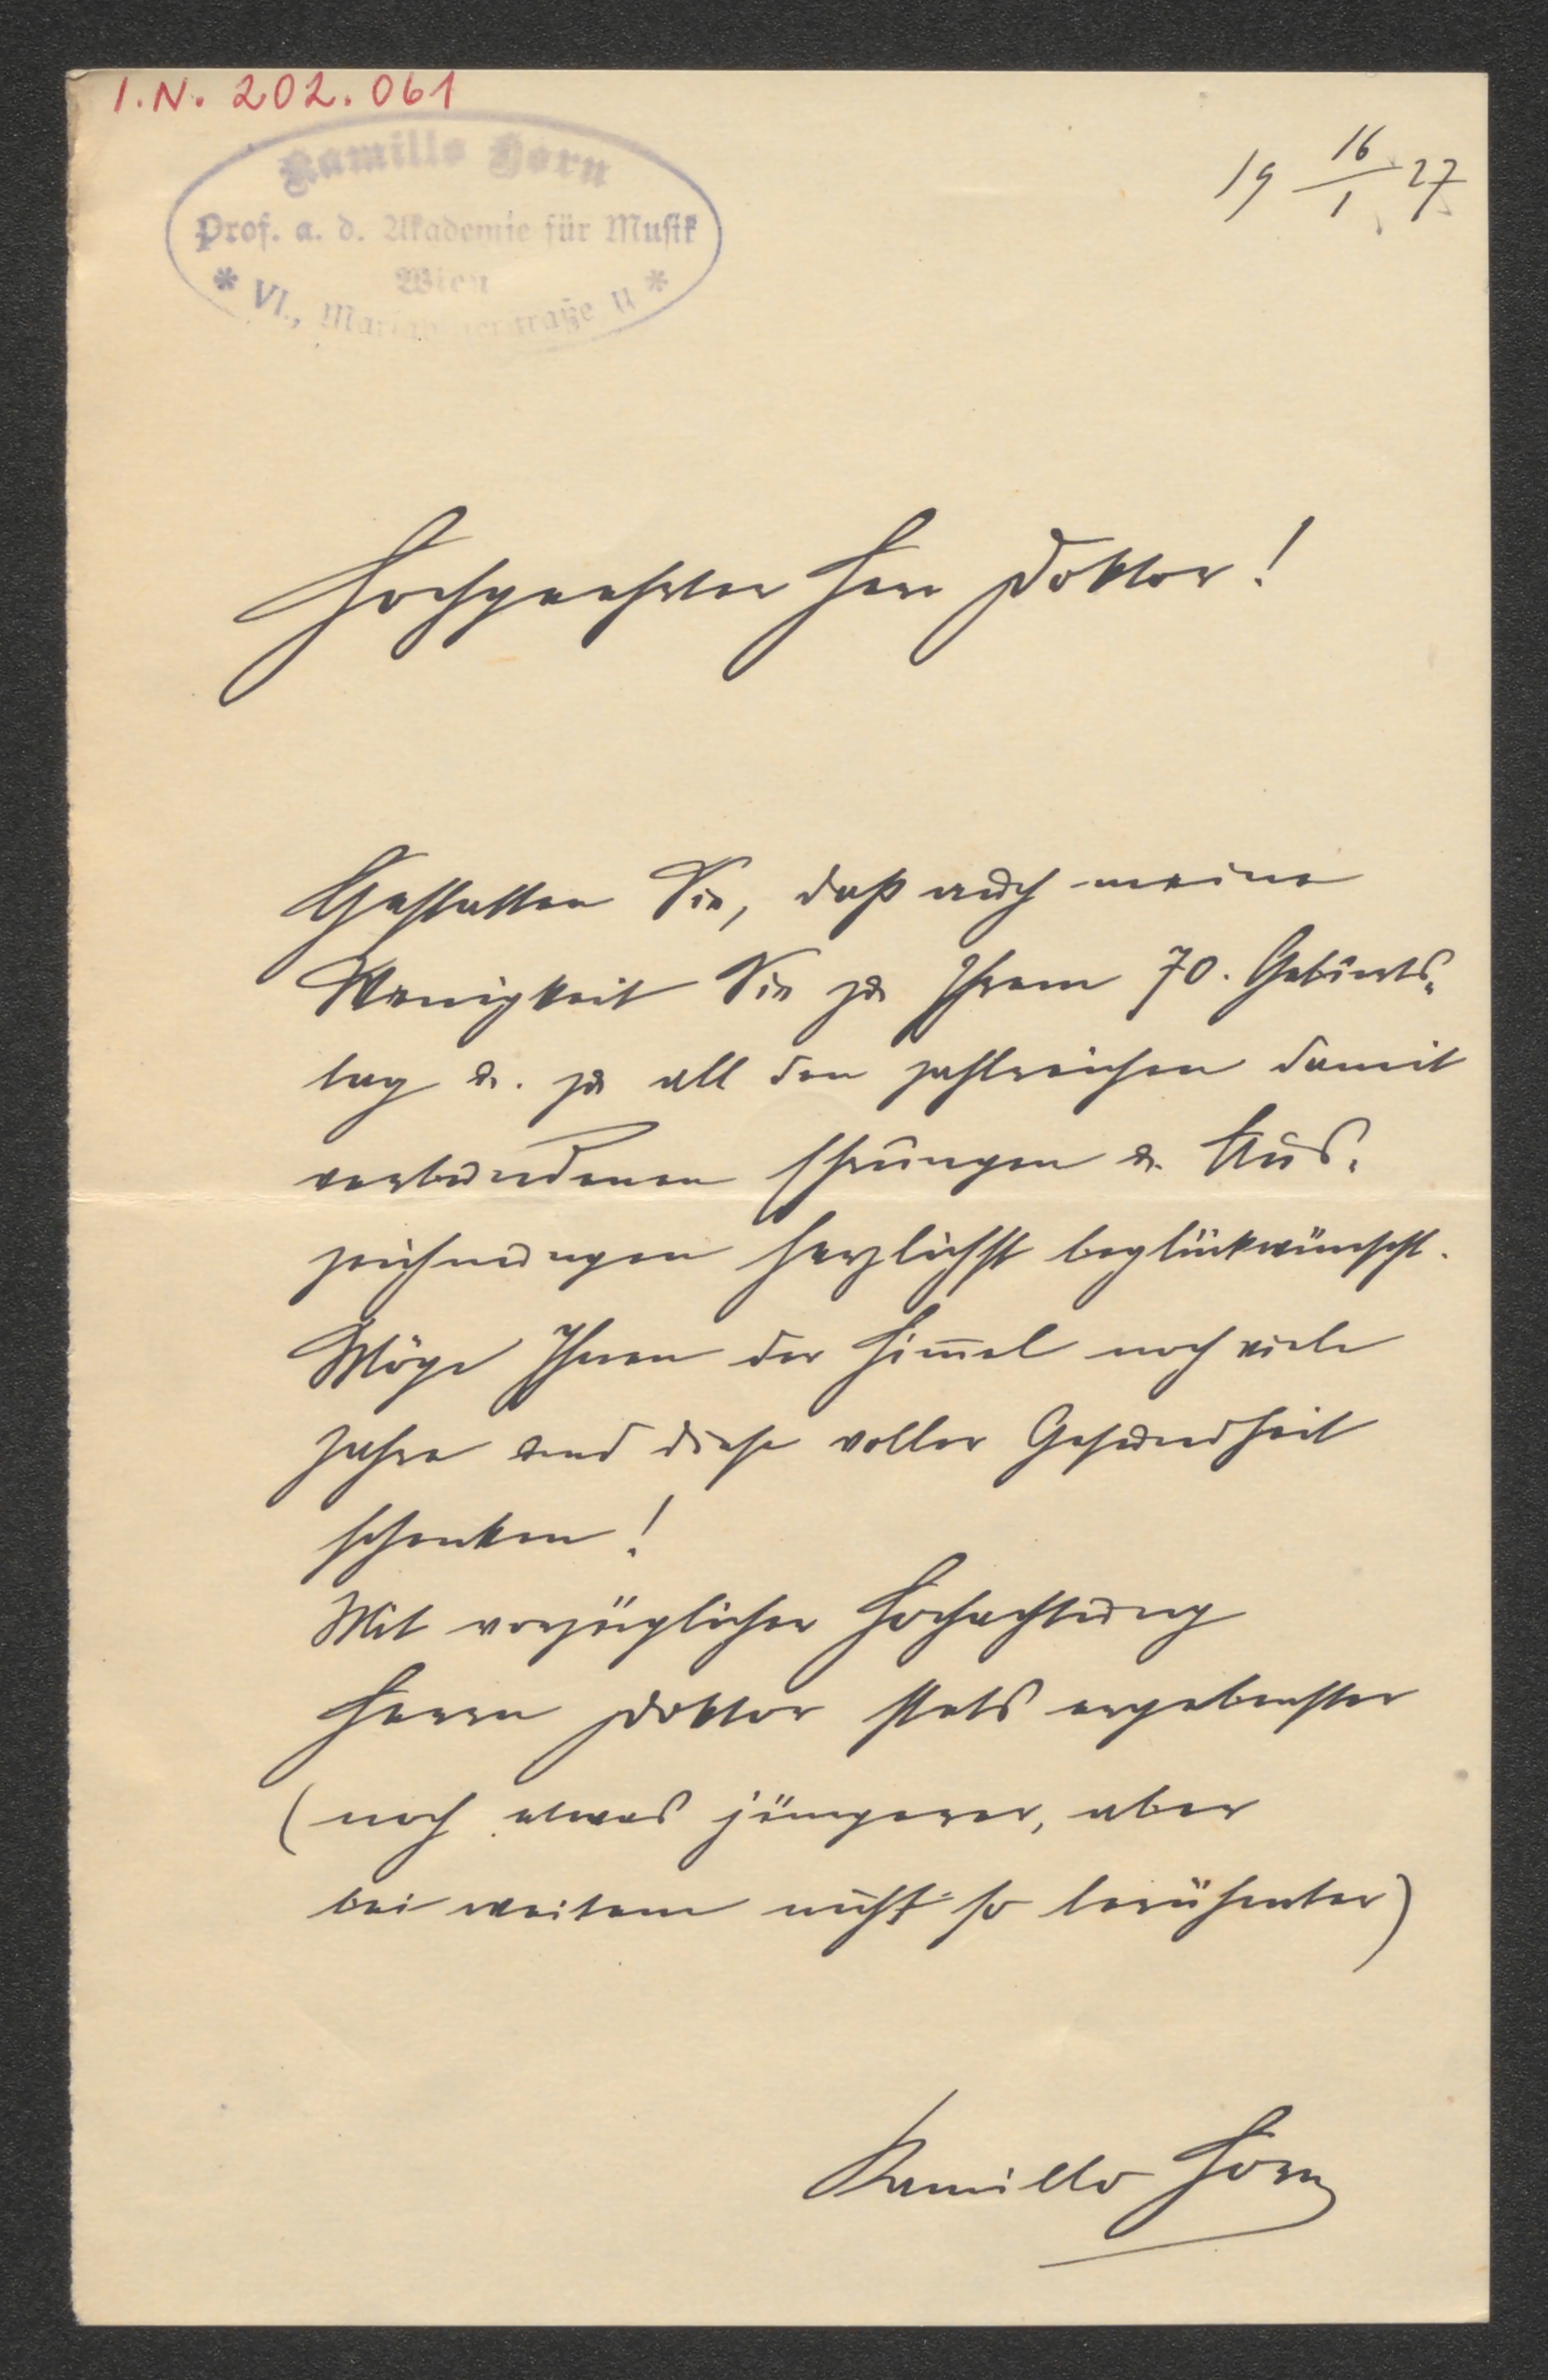 I.N. 202.061
Kamillo Horn
Prof. a. d. Akademie für Musik
Wien
* VI., Mariahilferstraße 11 *
19 16/1 27
Hochgeehrter Herr Doktor!
Gestatten Sie, daß auch meine
Wenigkeit Sie zu Ihrem 70. Geburts-
tag u. zu all den zahlreichen damit
verbundenen Ehrungen u. Aus-
zeichnungen herzlichst beglückwünscht.
Möge Ihnen der Himmel noch viele
Jahre und diese voller Gesundheit
schenken!
Mit vorzüglicher Hochachtung
Herrn Doktor stets ergebenster
(noch etwas jüngerer, aber
bei weitem nicht so berühmter)
Kamillo Horn